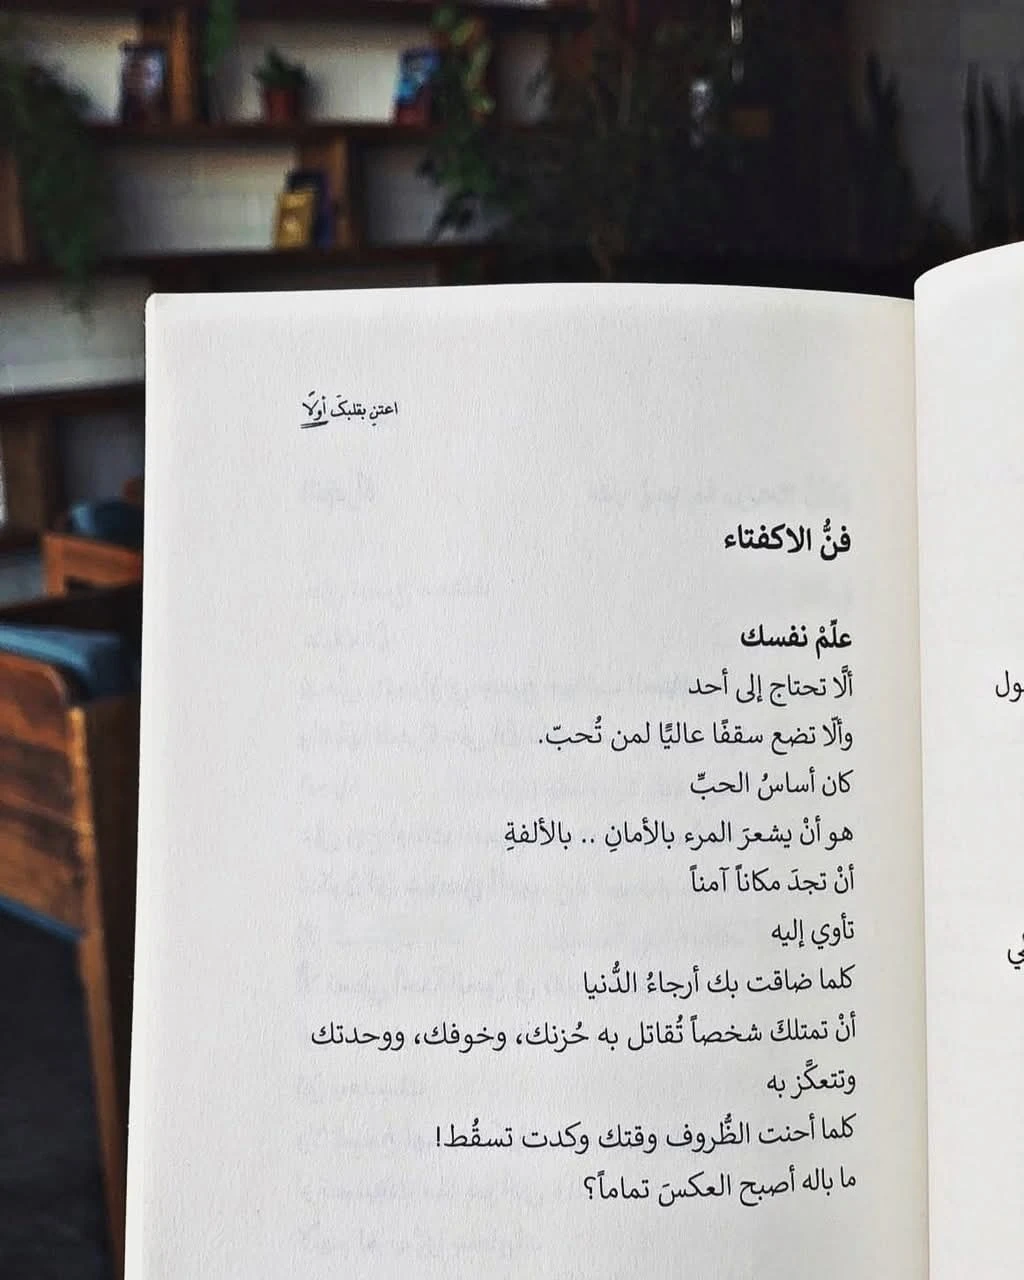 اعتنِ بقلبكَ أولًا
فنُّ الاكفتاء
علّمْ نفسك
ألَّا تحتاج إلى أحد
وألّا تضع سقفًا عاليًا لمن تُحبّ.
كان أساسُ الحبِّ
هو أنْ يشعرَ المرء بالأمانِ .. بالألفةِ
أنْ تجدَ مكاناً آمناً
تأوي إليه
كلما ضاقت بك أرجاءُ الدُّنيا
أنْ تمتلكَ شخصاً تُقاتل به حُزنك، وخوفك، ووحدتك
وتتعكَّز به
كلما أحنت الظُّروف وقتك وكدت تسقُط!
ما باله أصبح العكسَ تماماً؟